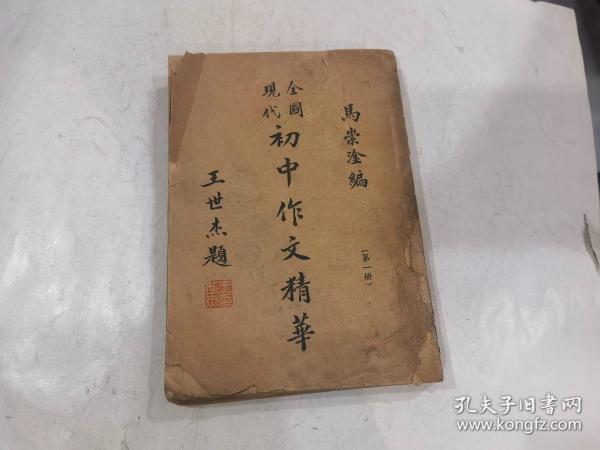 馬崇淦編
(第一冊)
全國
現代
初中作文精華
王世杰題
孔夫子旧书网
www.kongfz.com